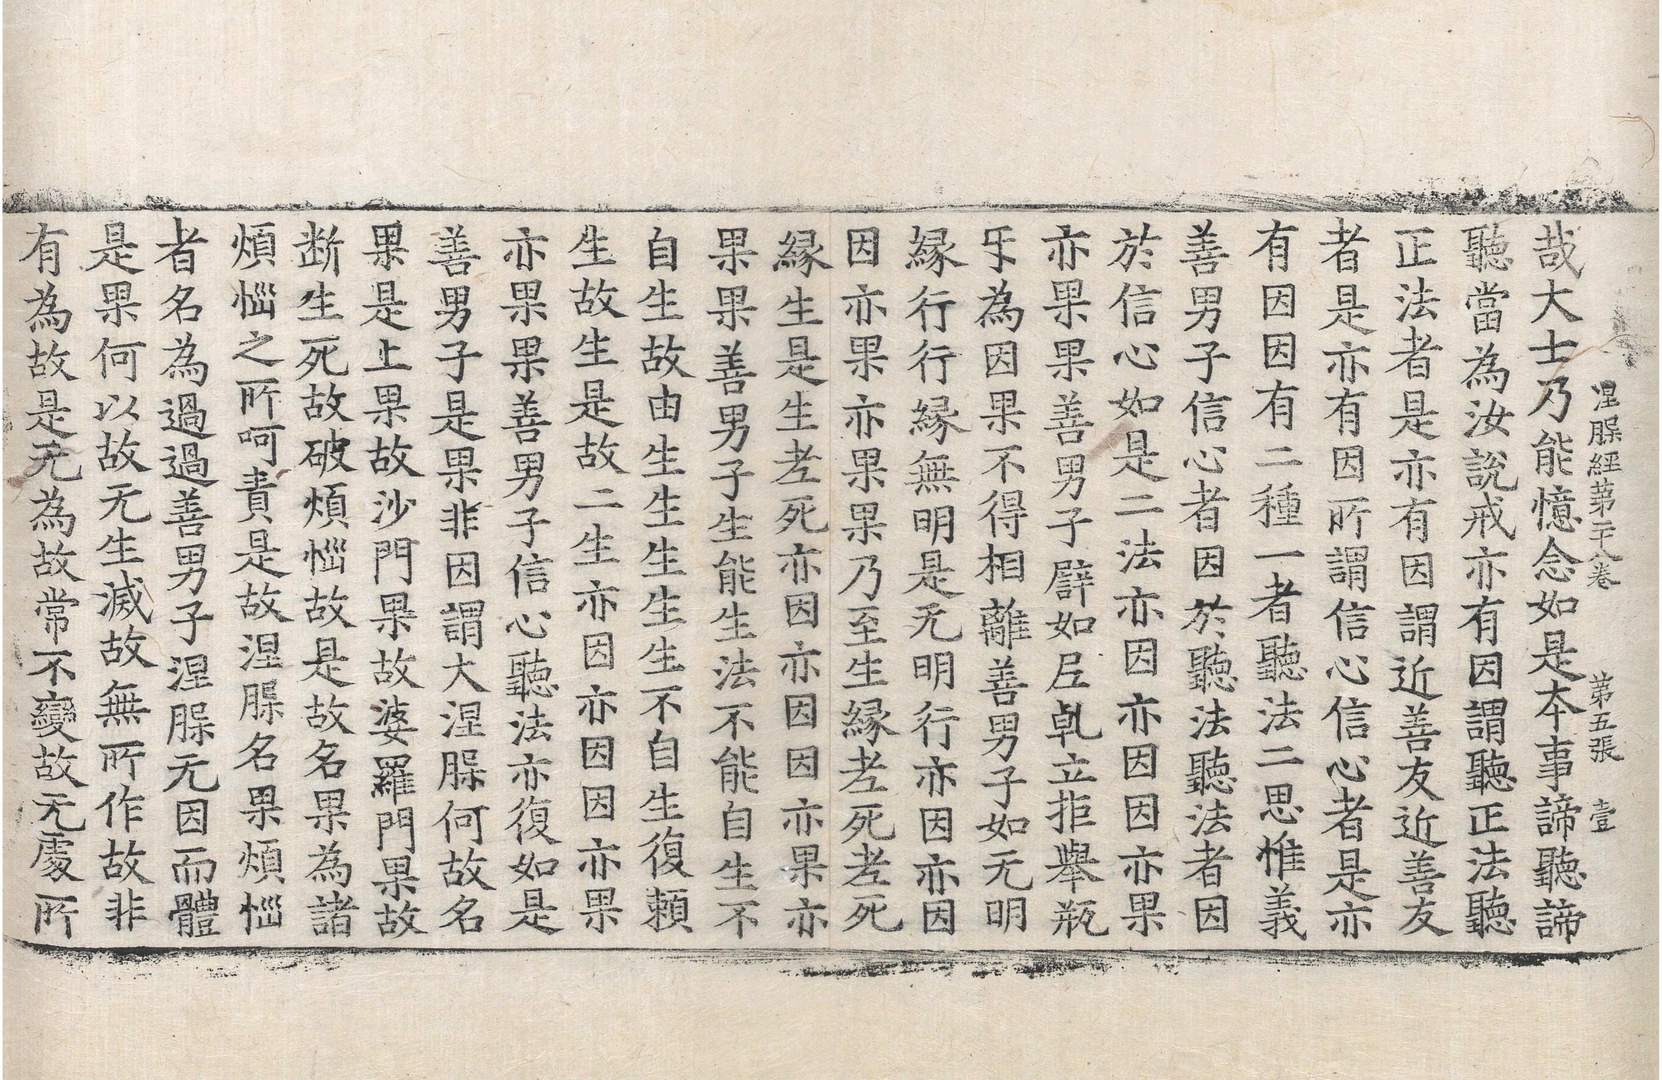 涅槃經第二十八卷　第五張　壹
哉大士乃能憶念如是本事諦聽諦
聽當為汝說戒亦有因謂聽正法聽
正法者是亦有因謂近善友近善友
者是亦有因所謂信心信心者是亦
有因因有二種一者聽法二思惟義
善男子信心者因於聽法聽法者因
於信心如是二法亦因亦因因亦果
亦果果善男子譬如𡰱乹立拒舉瓶
㸦為因果不得相離善男子如无明
緣行行緣無明是无明行亦因亦因
因亦果亦果果乃至生緣老死老死
緣生是生老死亦因亦因因亦果亦
果果善男子生能生法不能自生不
自生故由生生生生生不自生復賴
生故生是故二生亦因亦因因亦果
亦果果善男子信心聽法亦復如是
善男子是果非因謂大涅槃何故名
果是上果故沙門果故婆羅門果故
断生死故破煩惱故是故名果為諸
煩惱之所呵責是故涅槃名果煩惱
者名為過過善男子涅槃无因而體
是果何以故无生滅故無所作故非
有為故是无為故常不變故无處所